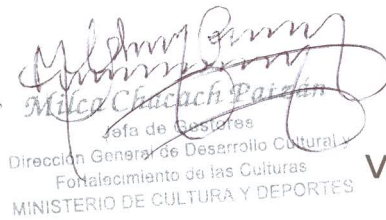 Milca Chacach Patzán
Jefa de Gestores
Dirección General de Desarrollo Cultural y
Fortalecimiento de las Culturas
MINISTERIO DE CULTURA Y DEPORTES
V